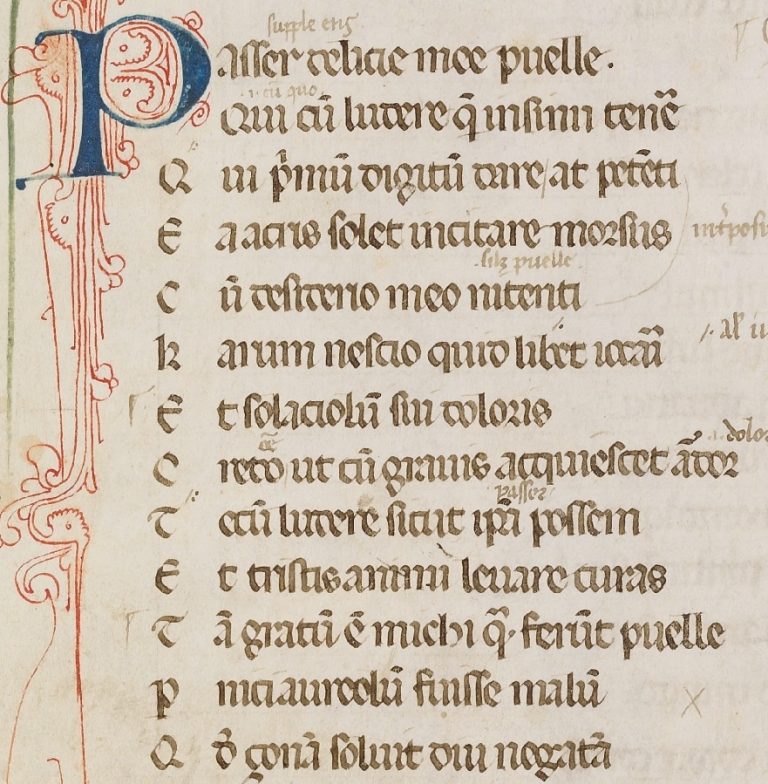 Passer delicie mee puelle.
.i. cū quo
Qui cū ludere q̄ insinu tenē
Qui p̄mū digitū dare/at petēti
Ea acris solet incitare morsus
puelle
Cū desiderio meo nitenti
Karum nescio quid libet iocarī
Et solaciolū sui doloris
dolor
Credo ut cū grauis acquiescet ār̄dor
passer
Tecū ludere sicut ip̄a possem
Et tristis animi leuare curas
Tā gratū ē michi qᵃ̄. ferūt puelle
Pnici aureolū fuisse malū
Qđ çonā soluit diu negatā